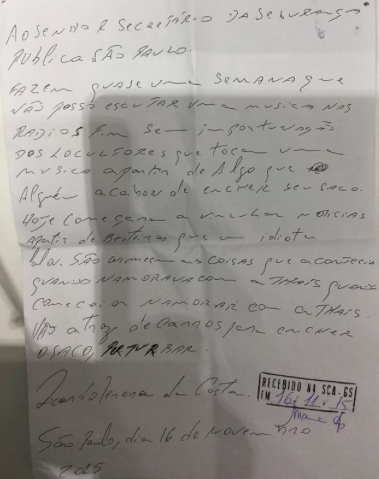 AO SENHOR SECRETÁRIO DA SEGURANÇA
PUBLICA SÃO PAULO.
FAZEM QUASE UMA SEMANA QUE
NÃO POSSO ESCUTAR UMA MUSICA NAS
RADIOS F.M SEM IMPORTUNAÇÃO
DOS LOCUTORES QUE TOCAM UMA
MUSICA APARTIR DE ALGO QUE
ALGUÉM ACABOU DE ENCHER SEU SACO.
HOJE COMEÇARAM A VINCULAR NOTICIAS
APARTIR DE BESTEIRAS QUE UM IDIOTA
FALA. SÃO AS MESMAS COISAS QUE ACONTECIA
QUANDO NAMORAVA COM A THAIS QUANDO
COMECEI A NAMORAR COM A THAIS.
VÃO ATRAZ DE CARROS PARA ENCHER
O SACO, PERTURBAR.
da Costa.
RECEBIDO NA SCA-GS
EM 16/11/15
São Paulo, dia 16 de Novembro
2015